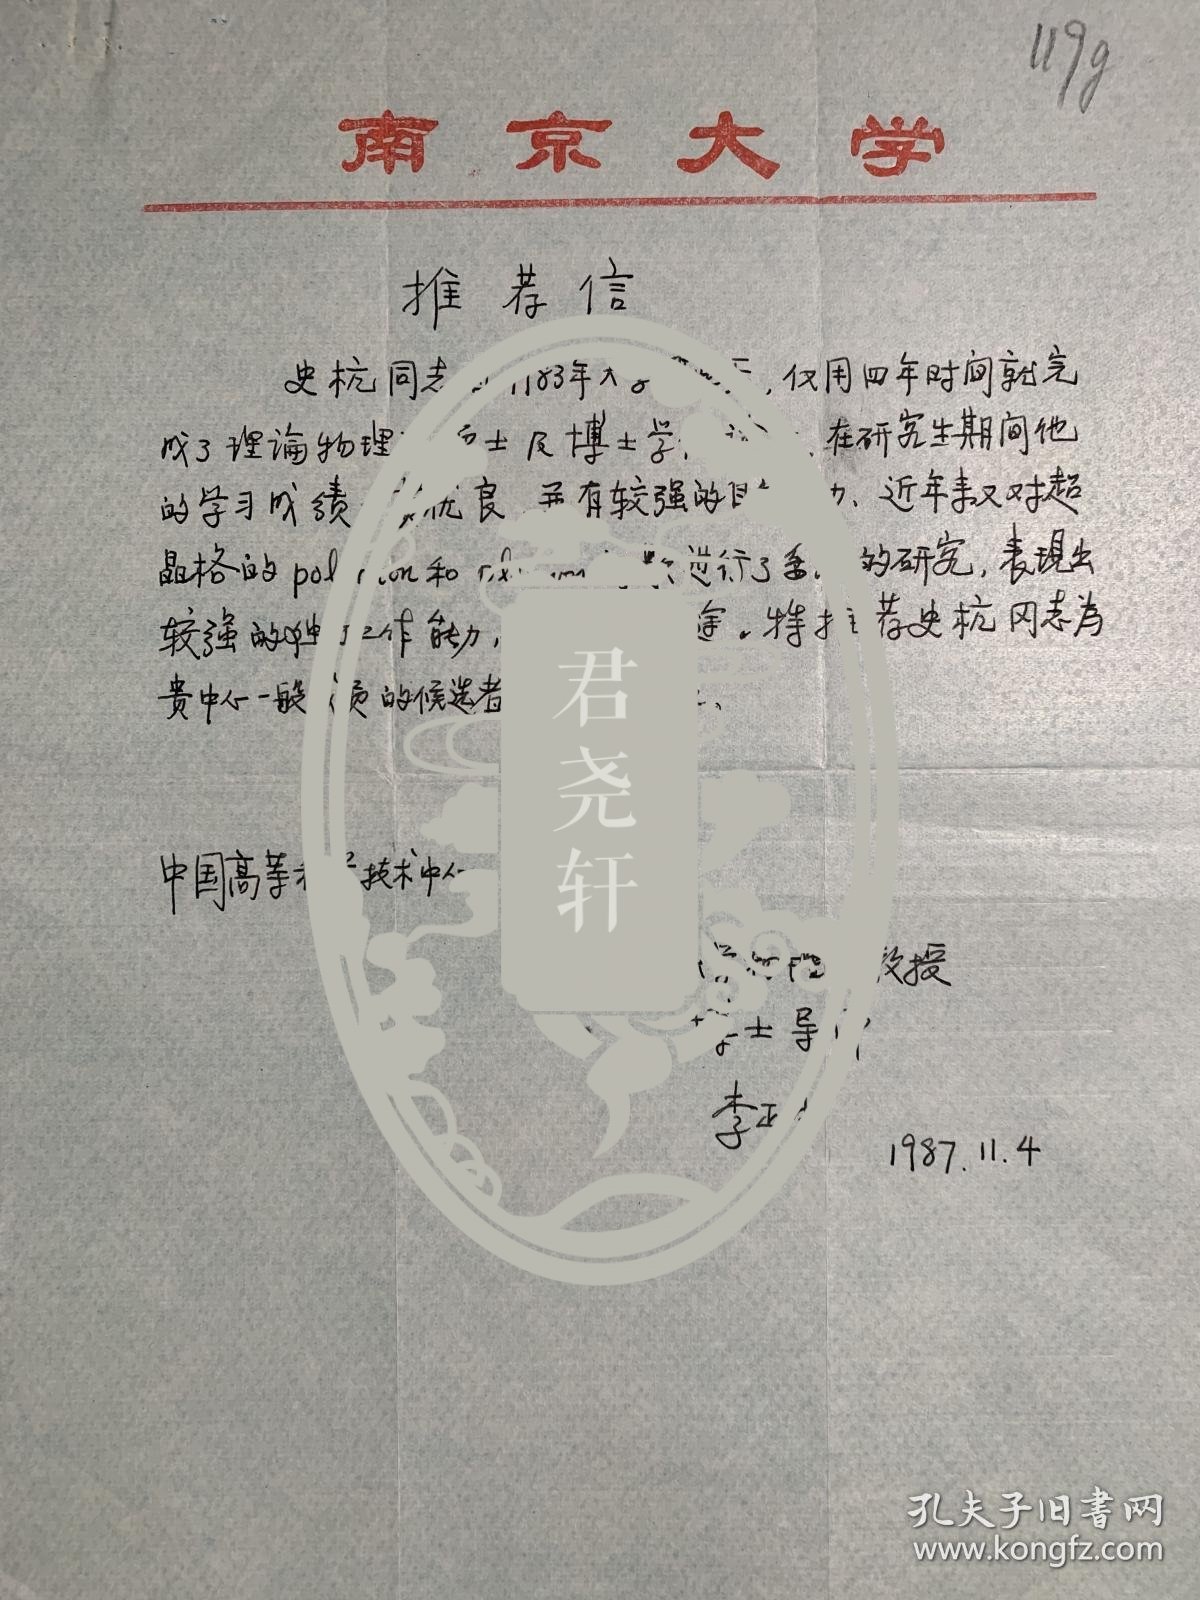 119g
南京大学
推荐信
史杭同志 1983年大 ,仅用四年时间就完
成了理論物理 士及博士学 ,在研究生期间他
的学习成绩 优良,并有较强的 力、近年来又对超
晶格的 和 进行了 的研究,表現出
较强的独 工作能力, 途。特推荐史杭同志为
贵中心一般 员的候选者
中国高等 技术中心
君尧轩
教授
士导
李正
1987.11.4
孔夫子旧書网
www.kongfz.com